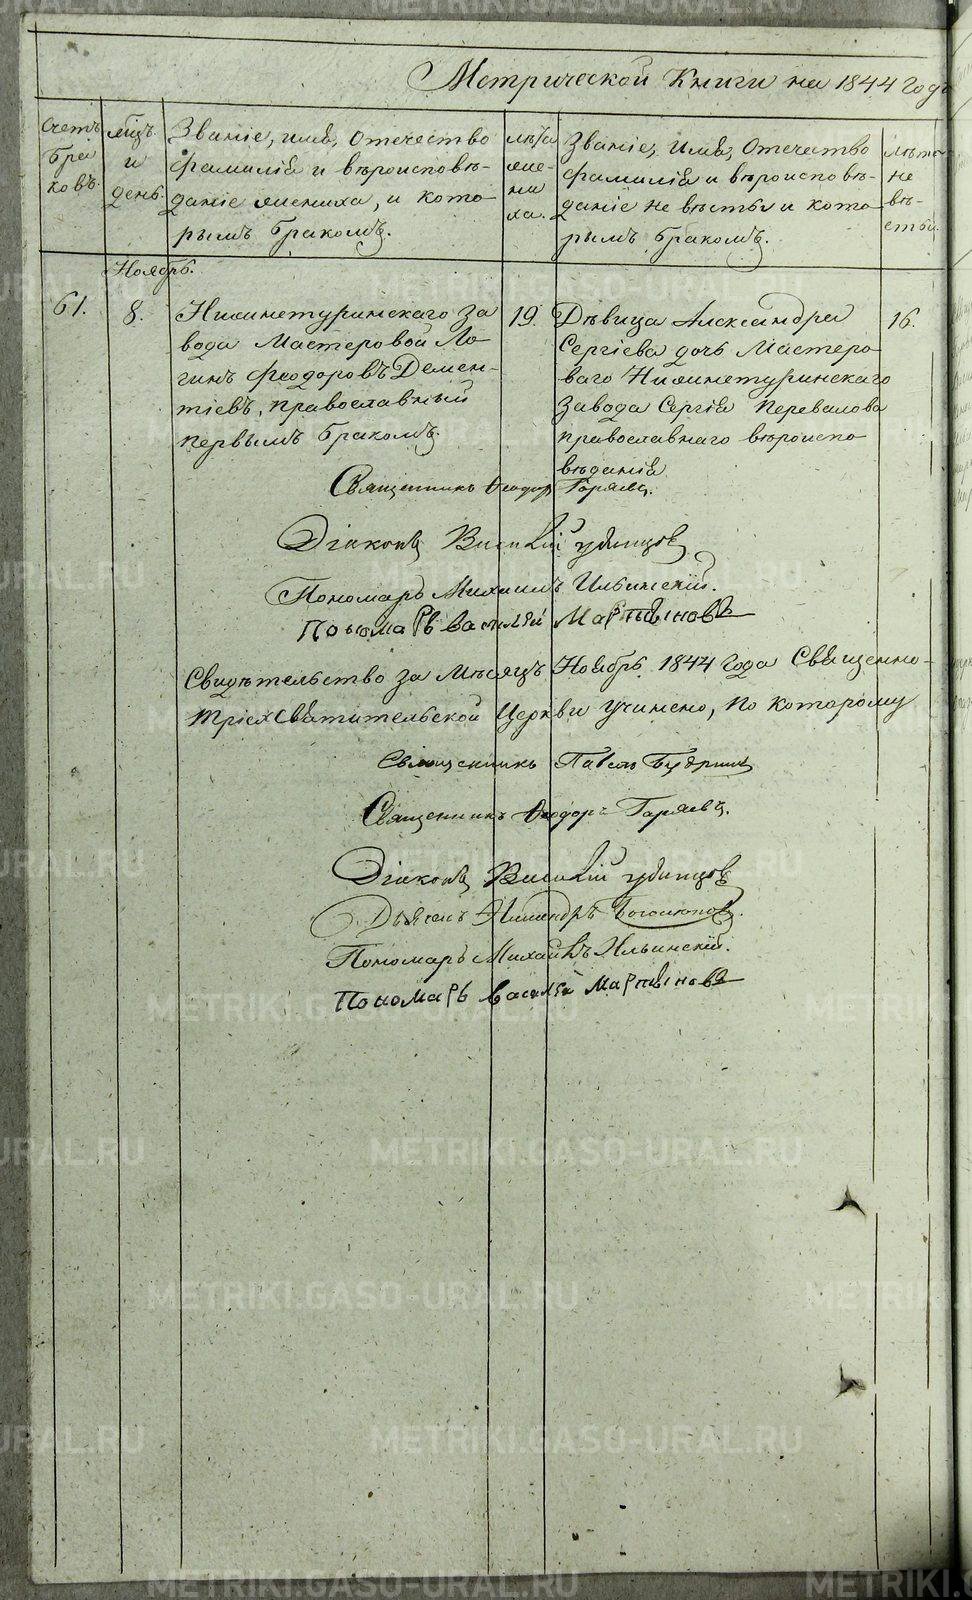 Метрической Книги на 1844 годъ
Счетъ браковъ.
Мѣсц. и день.
Званіе, имя, отечество
фамилія и вѣроисповѣ-
даніе жениха, и кото-
рымъ бракомъ.
лѣта жениха.
Званіе, имя, отечество
фамилія и вѣроисповѣ-
даніе невѣсты и кото-
рымъ бракомъ.
лѣта невѣсты.
Ноябрь.
61.
8.
Нижнетуринскаго За
вода Мастеровой Ло-
гинъ Феодоровъ Демен-
тіевъ, православный
первымъ бракомъ.
19.
Дѣвица Александра
Сергіева дочь Мастеро-
ваго Нижнетуринскаго
Завода Сергія Перевалова
православнаго вѣроиспо
вѣданія
16.
Священникъ Ѳеодоръ Горяевъ.
Діаконъ Василій Удинцовъ
Пономарь Михаилъ Ильинскій.
Пономарь Василій Мартыновъ
Свидѣтельство за Мѣсяцъ Ноябрь 1844 года Священно-
тріехСвятительской Церкви учинено, по которому
Священникъ Павелъ
Священникъ Ѳеодоръ Горяевъ.
Діаконъ Василій Удинцовъ
Дьячекъ
Пономарь Михаилъ Ильинскій.
Пономарь Василій Мартыновъ
METRIKI.GASO-URAL.RU